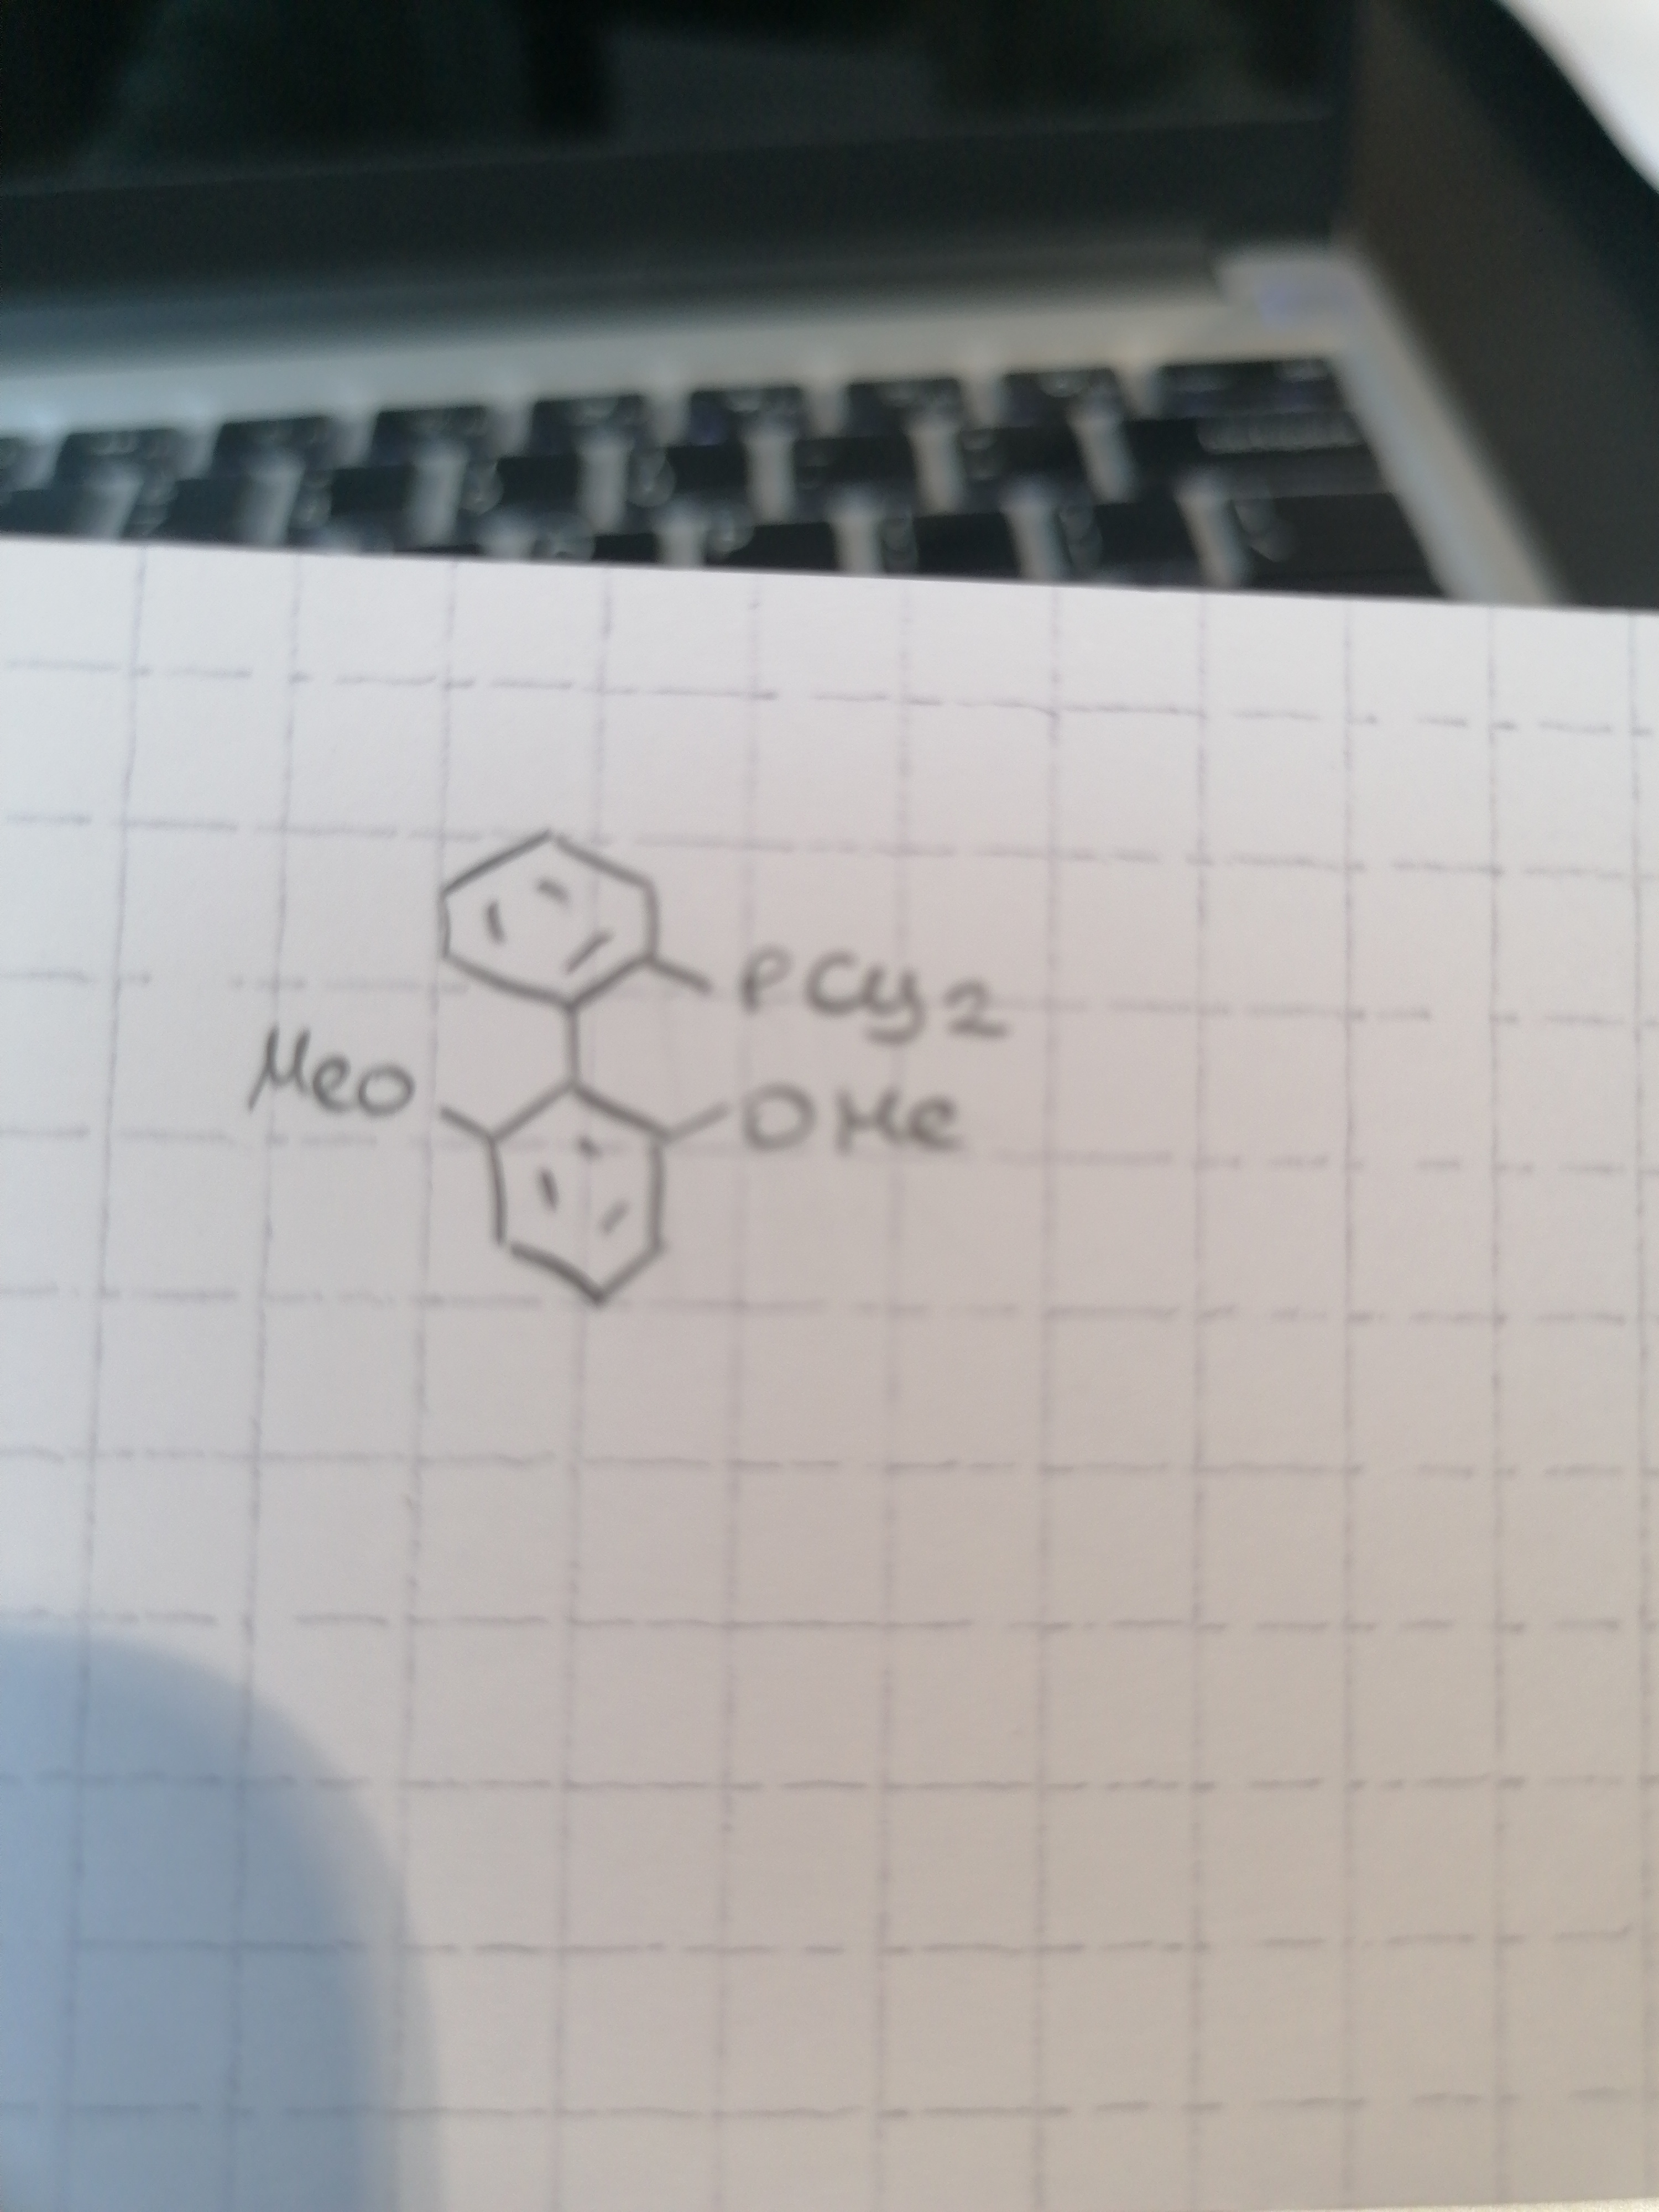 PCy2
MeO
OMe